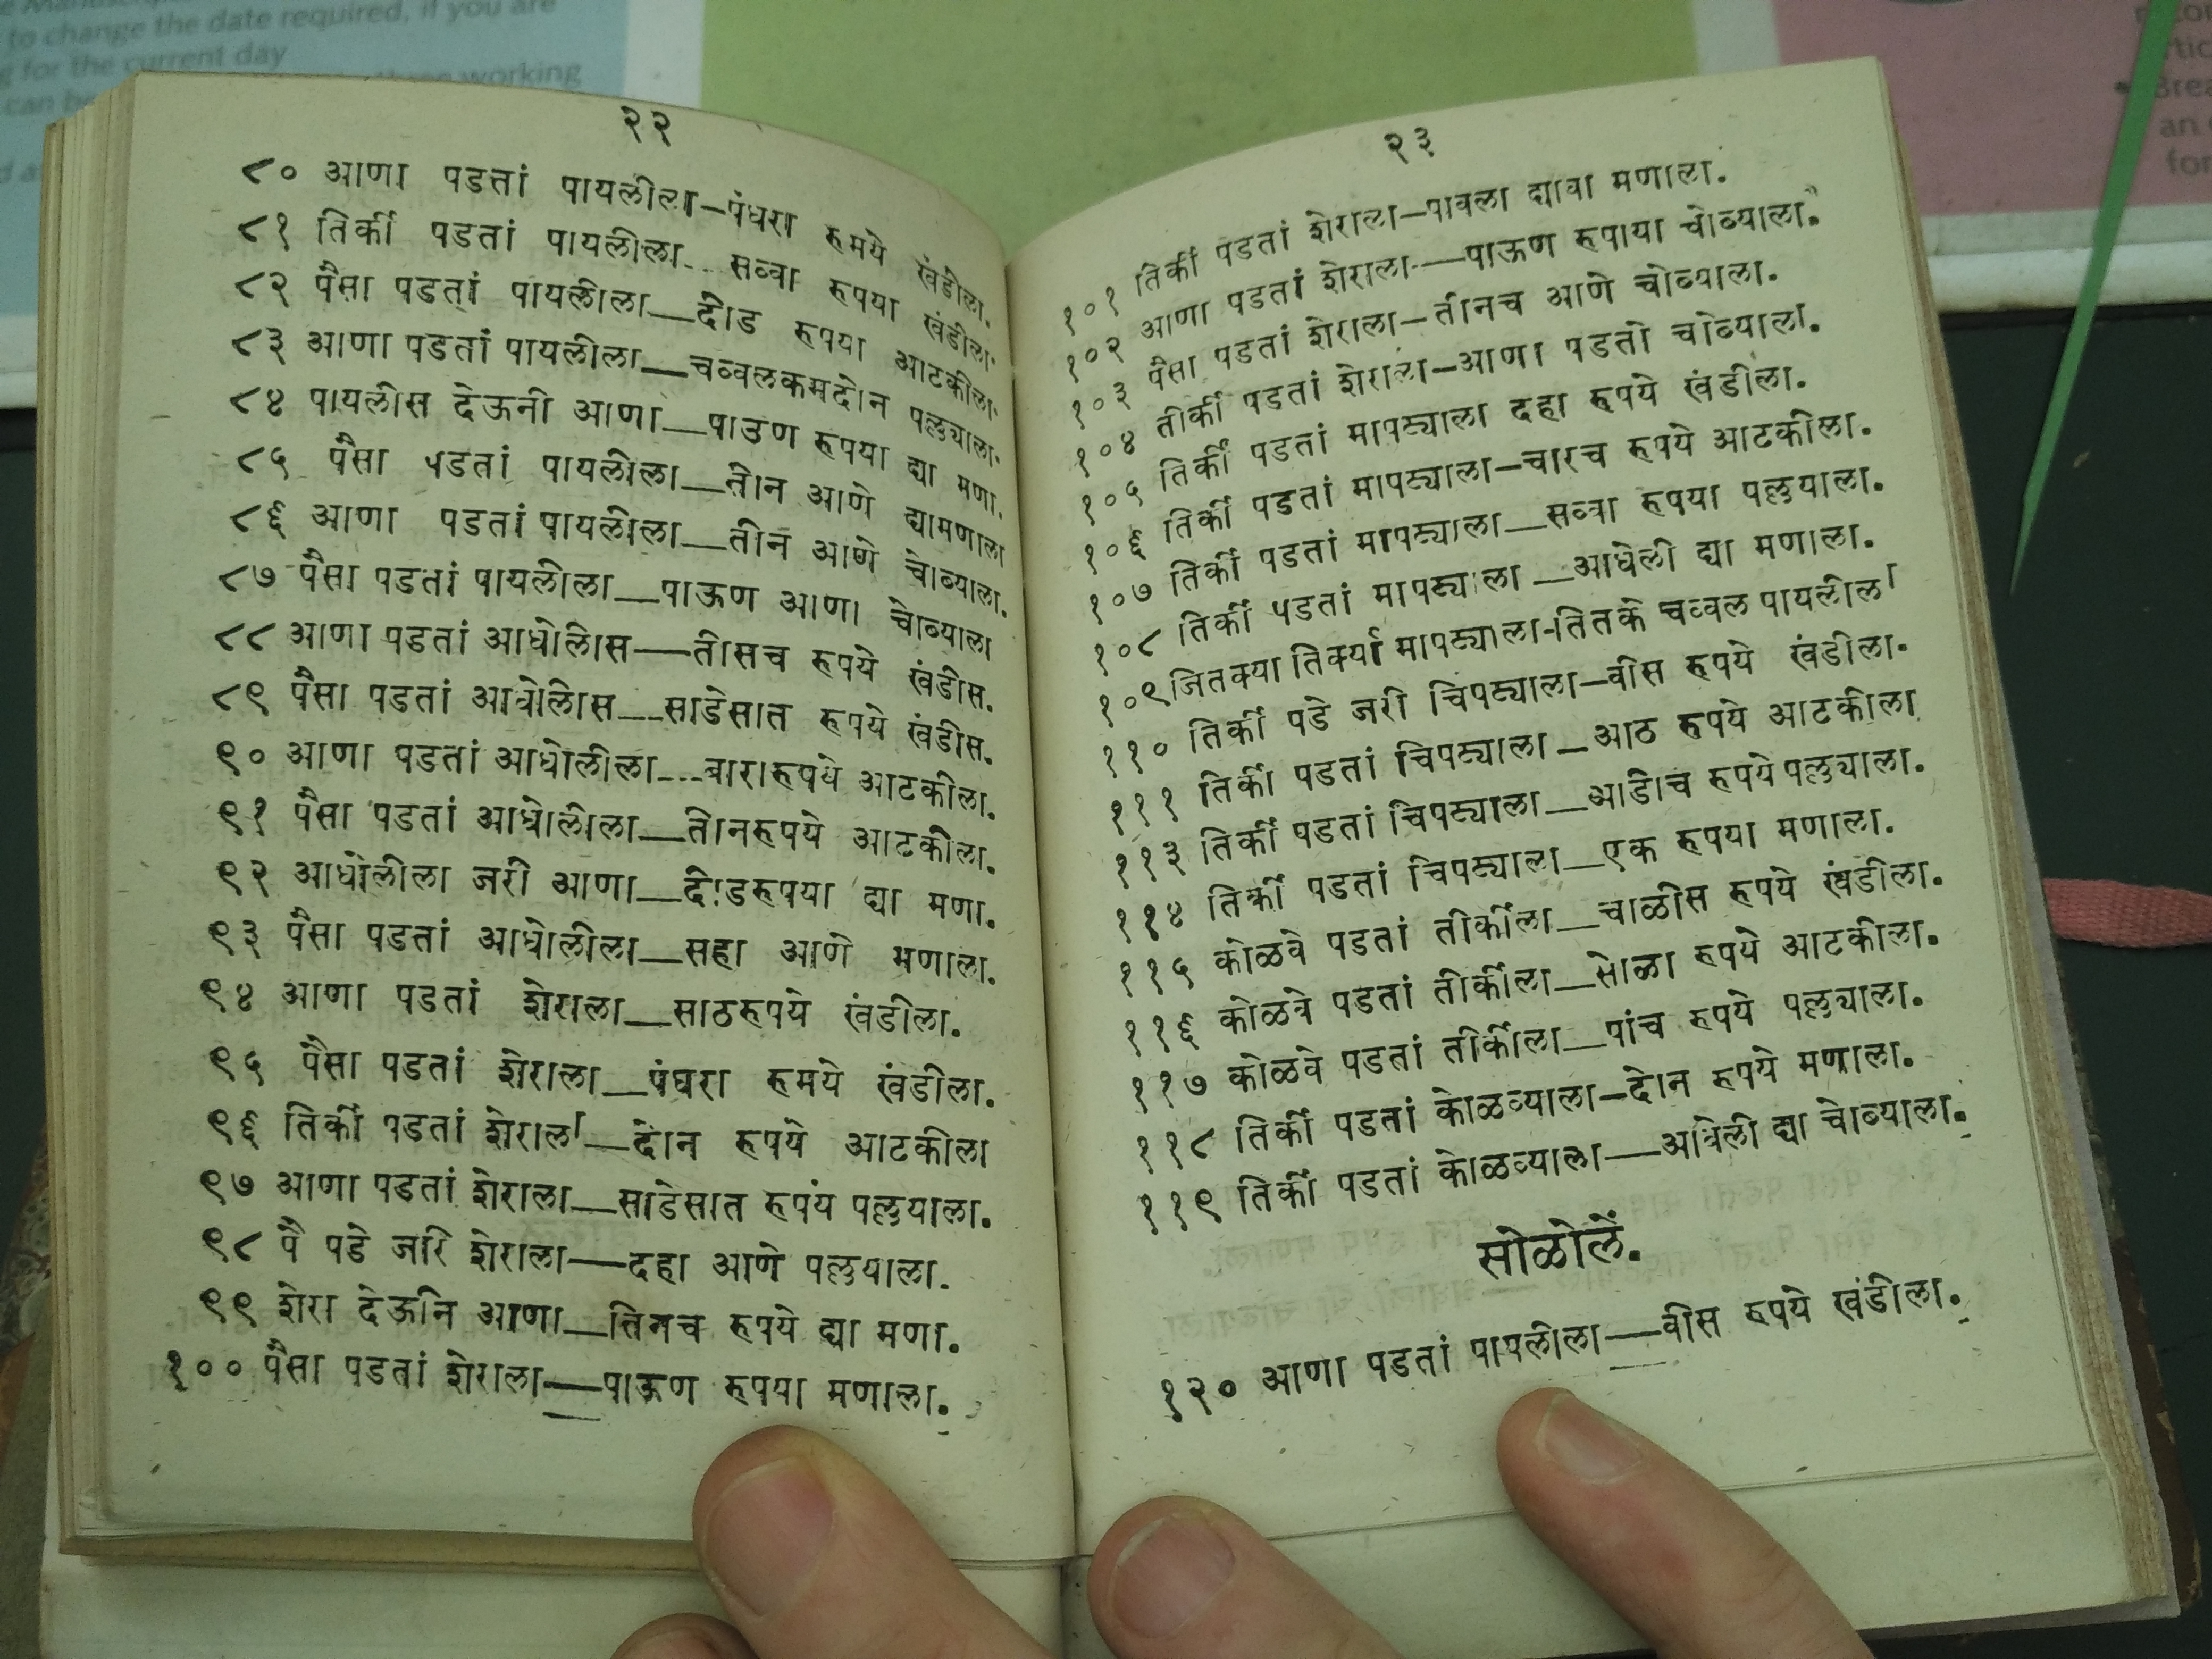 to change the date required, if you are
for the current day
working
can be
Brea
an
for
२२
८० आणा पडतां पायलीला—पंधरा रुमये खंडीला.
८१ तिर्की पडतां पायलीला... सव्वा रुपया खंडीला.
८२ पैसा पडतां पायलीला—दीड रुपया आटकीला.
८३ आणा पडतां पायलीला—चव्वलकमदोन पल्लुयाला.
८४ पायलीस देऊनी आणा—पाउण रुपया द्या मणा.
८५ पैसा पडतां पायलीला—तीन आणे द्यामणाला
८६ आणा पडतां पायलीला—तीन आणे चोव्याला.
८७ पैसा पडतां पायलीला—पाऊण आणा चोव्याला
८८ आणा पडतां आधोलीस—तीसच रुपये खंडीस.
८९ पैसा पडतां आधोलीस—साडेसात रुपये खंडीस.
९० आणा पडतां आधोलीला...बारारुपये आटकीला.
९१ पैसा पडतां आधोलीला—तीनरुपये आटकीला.
९२ आधोलीला जरी आणा—दीडरुपया द्या मणा.
९३ पैसा पडतां आधोलीला—सहा आणे मणाला.
९४ आणा पडतां शेराला—साठरुपये खंडीला.
९५ पैसा पडतां शेराला—पंधरा रुमये खंडीला.
९६ तिर्की पडतां शेराला—दोन रुपये आटकीला
९७ आणा पडतां शेराला—साडेसात रुपयं पल्लुयाला.
९८ पै पडे जरि शेराला—दहा आणे पल्लुयाला.
९९ शेरा देऊनि आणा—तिनच रुपये द्या मणा.
१०० पैसा पडतां शेराला—पाऊण रुपया मणाला.
२३
१०१ तिर्की पडतां शेराला—पावला द्यावा मणाला.
१०२ आणा पडतां शेराला—पाऊण रुपाया चोव्याला.
१०३ पैसा पडतां शेराला—तीनच आणे चोव्याला.
१०४ तीर्की पडतां शेराला—आणा पडतो चोव्याला.
१०५ तिर्की पडतां मापट्याला दहा रुपये खंडीला.
१०६ तिर्की पडतां मापट्याला—चारच रुपये आटकीला.
१०७ तिर्की पडतां मापट्याला—सव्वा रुपया पल्लुयाला.
१०८ तिर्की पडतां मापट्याला—आधेली द्या मणाला.
१०९ जितक्या तिर्क्या मापट्याला-तितके चव्वल पायलीला
११० तिर्की पडे जरी चिपट्याला—वीस रुपये खंडीला.
१११ तिर्की पडतां चिपट्याला—आठ रुपये आटकीला
११३ तिर्की पडतां चिपट्याला—आडीच रुपये पल्लुयाला.
११४ तिर्की पडतां चिपट्याला—एक रुपया मणाला.
११५ कोळवे पडतां तीर्कीला—चाळीस रुपये खंडीला.
११६ कोळवे पडतां तीर्कीला—सोळा रुपये आटकीला.
११७ कोळवे पडतां तीर्कीला—पांच रुपये पल्लुयाला.
११८ तिर्की पडतां कोळव्याला—दोन रुपये मणाला.
११९ तिर्की पडतां कोळव्याला—आधेली द्या चोव्याला.
सोळोलें.
१२० आणा पडतां पापलीला—वीस रुपये खंडीला.